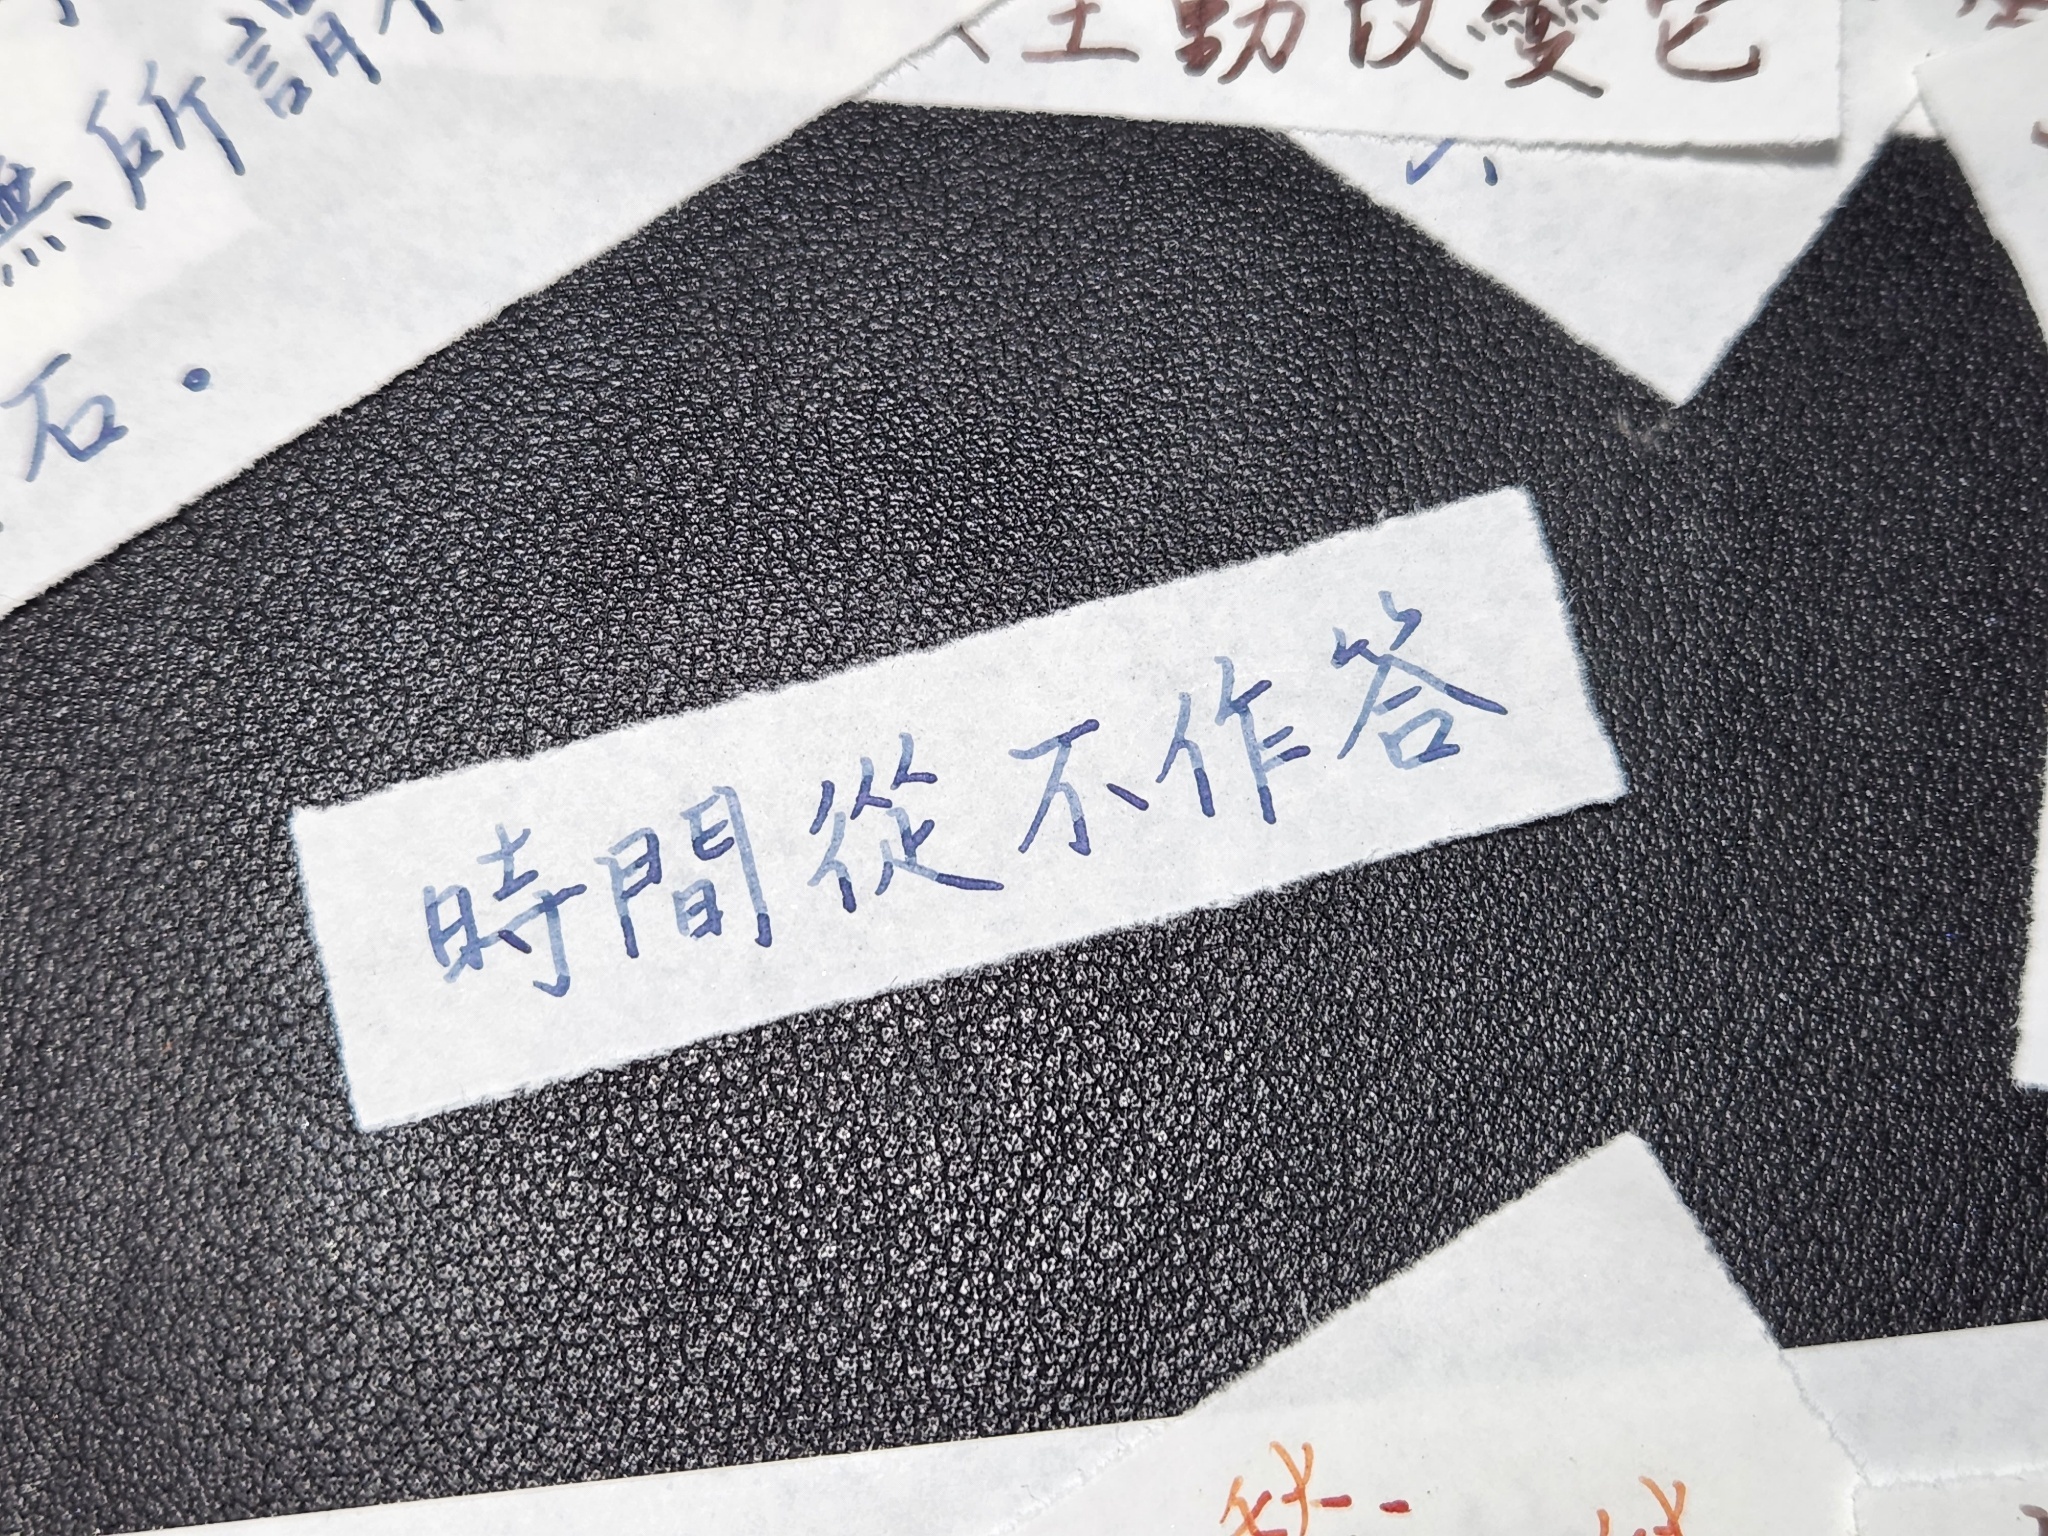 主動改變它
無所謂
石。
時間從不作答